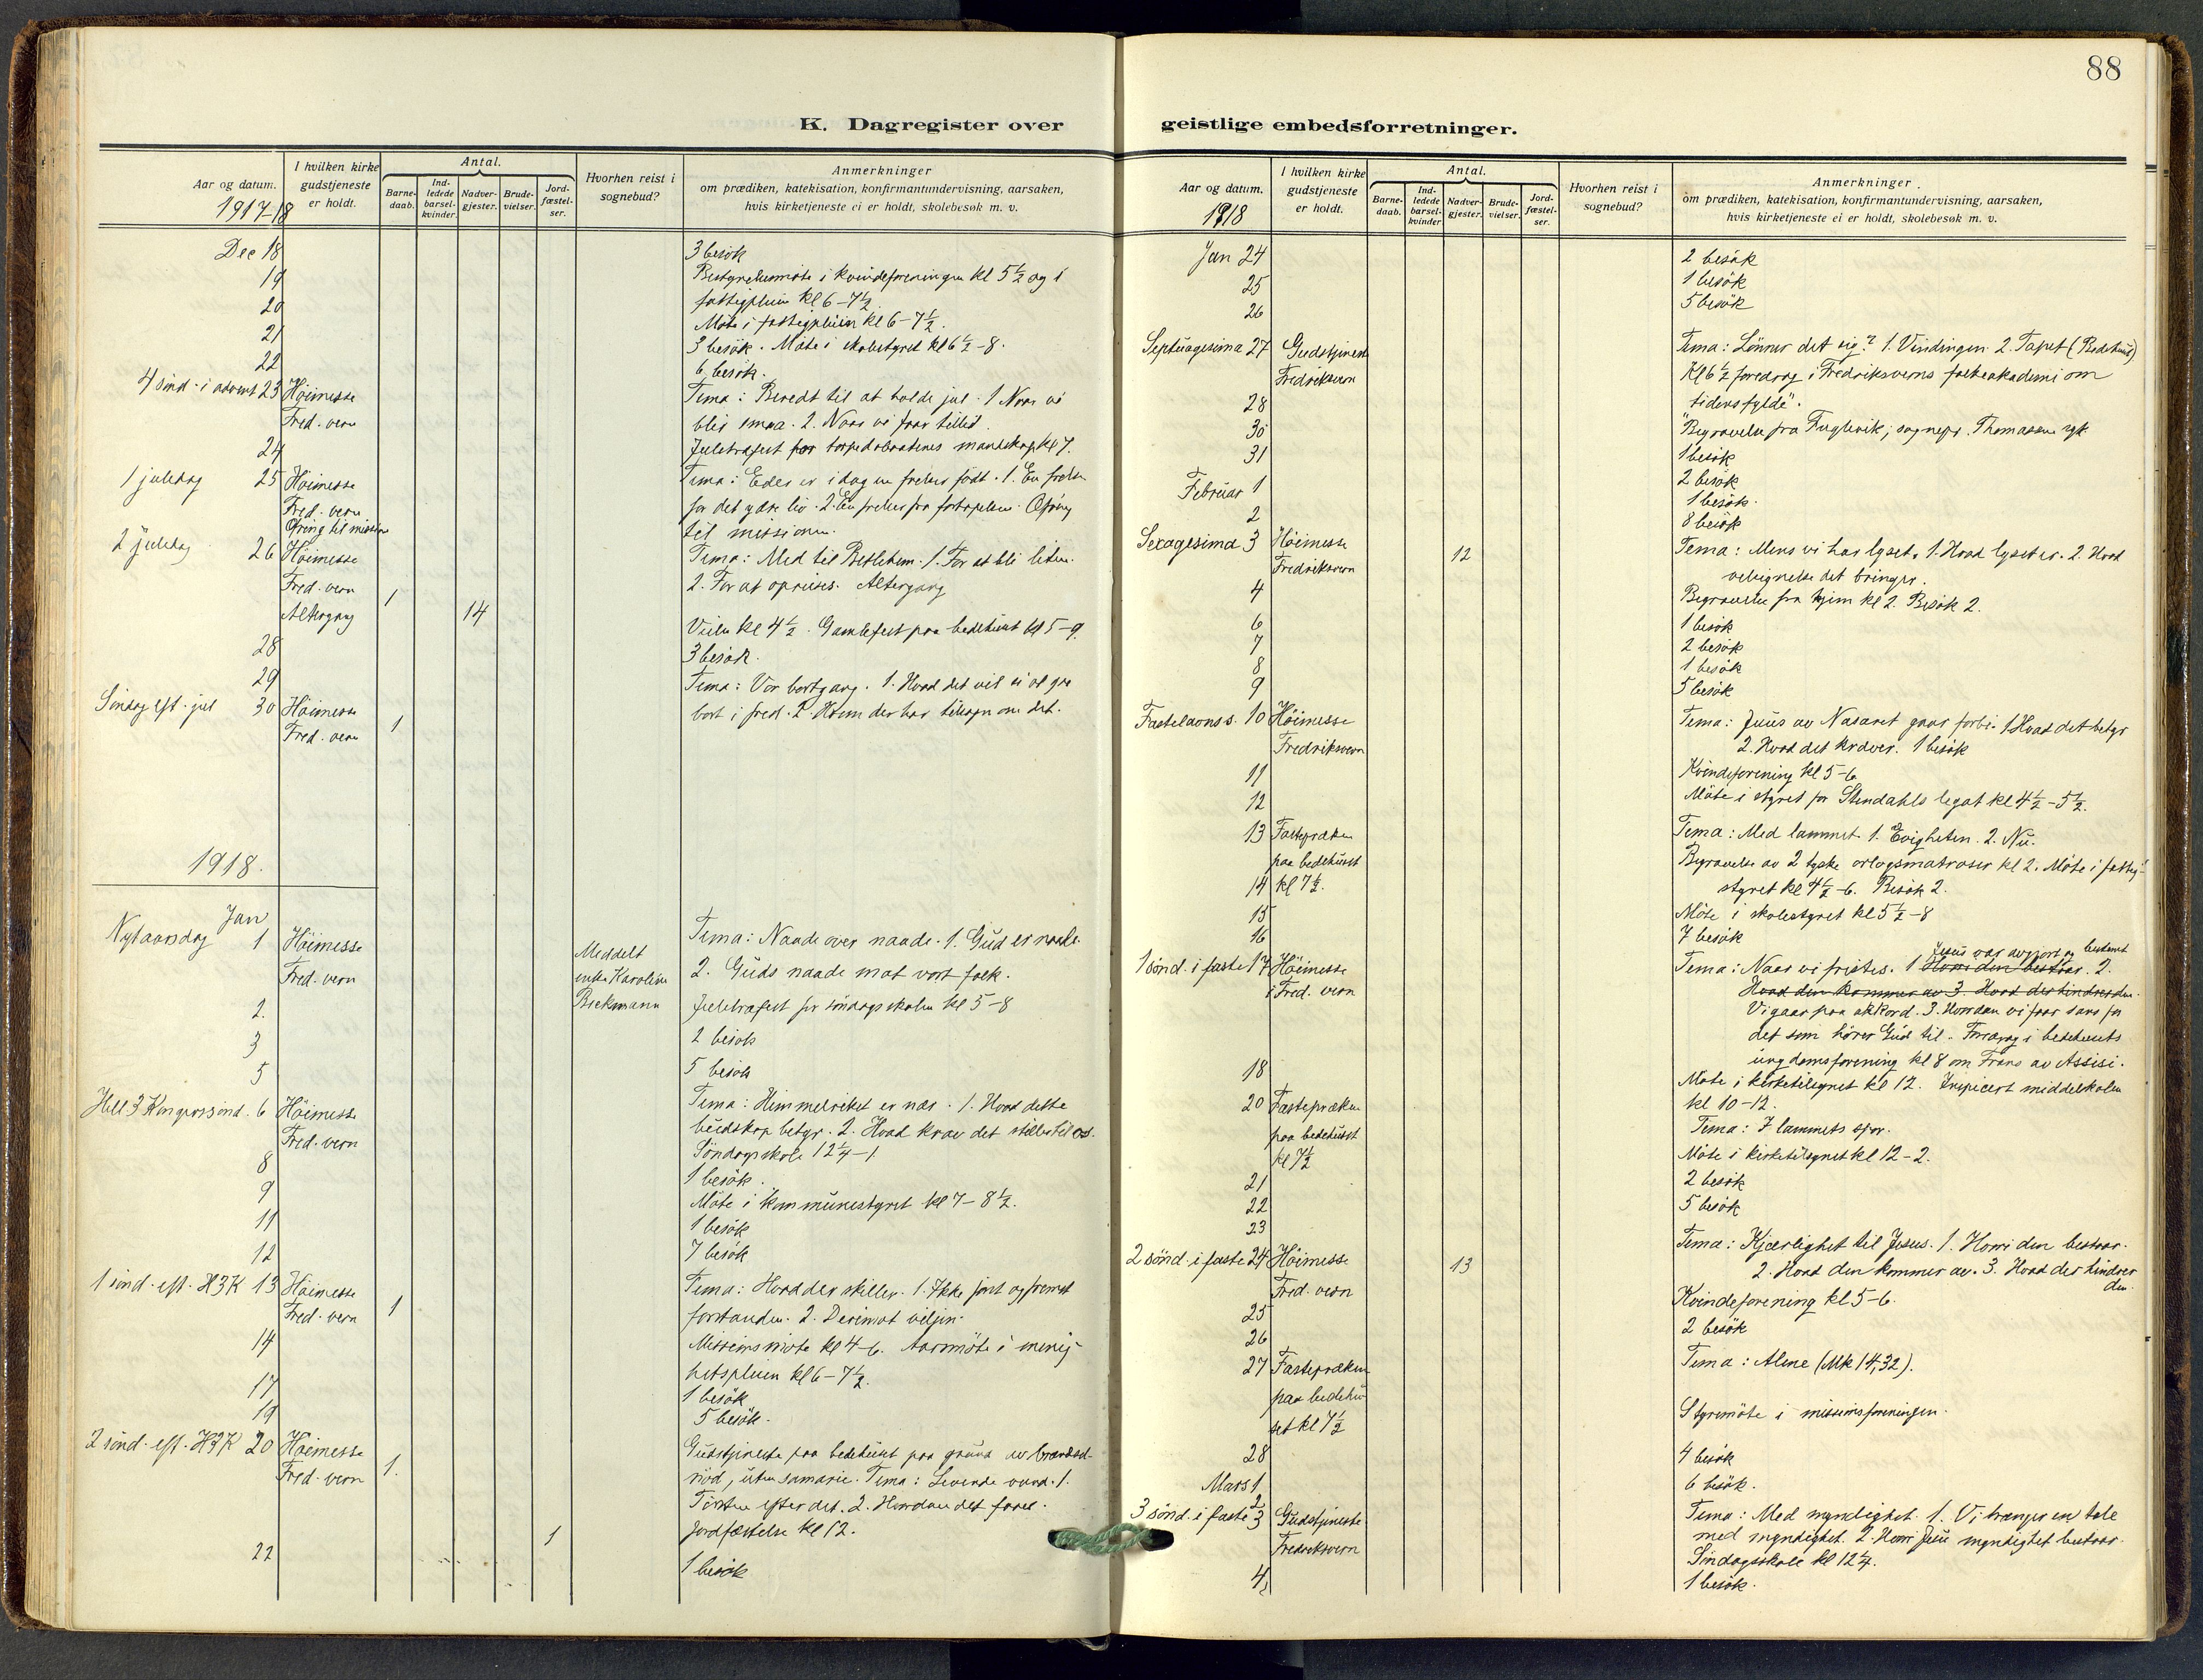 88
K. Dagregister over geistlige embedsforretninger.
Aar og datum.
1917-18
I hvilken kirke gudstjeneste er holdt.
Antal.
Barne-daab.
Ind-ledede barsel-kvinder.
Nadver-gjester.
Brude-vielser.
Jord-fæstel-ser.
Hvorhen reist i sognebud?
Anmerkninger
om prædiken, katekisation, konfirmantundervisning, aarsaken,
hvis kirketjeneste ei er holdt, skolebesøk m. v.
Dec 18 3 besök
19 Bestyrelsesmöte i kvindeforeningen kl 5½ og i
fattigpleien kl 6-7½
20 Möte i fattigpleien kl 6-7½.
21 3 besök. Möte i skolestyret kl 6½-8.
22 6 besök.
4 sind. i advent 23 Höimesse Tema: Beredt til at holde jul. 1 Naar vi
Fred. vern blir smaa. 2. Naar vi faar tillid.
24 Juletræfest for torpedobaatenes mandskap kl 7.
1 juledag 25 Höimesse Tema: Eder er idag en frelser födt. 1. En frelser
Fred. vern for det ydre liv. 2. En frelser fra fortapelsen. Ofring
Ofring til mission til missionen.
2 juledag 26 Höimesse Tema: Med til Betlehem. 1. For at bli liten.
Fred. vern 1 2. For at opreises. Altergang
Altergang 14
Vielse kl 4½. Gamlefest paa bedehuset kl 5-9.
28 3 besök.
29
Söndag eft. jul 30 Höimesse Tema: Vor bortgang. 1. Hvad det vil si at gaa
Fred. vern 1 bort i fred. 2. Hvem der har tilsagn om det.
1918.
Jan
Nytaarsdag 1 Höimesse Meddelt Tema: Naade over naade. 1. Gud er naade.
Fred. vern enke Karoline 2. Guds naade mot vort folk.
2. Brekmann Juletræfest for söndagsskolen kl 5-8
3 2 besök
5 5 besök
Hell 3 Kongerssönd. 6 Höimesse Tema: Himmelriket er nær. 1. Hvad dette
Fred. vern budskap betyr. 2. Hvad krav det stiller til os.
Söndagsskole 12¼-1
8 1 besök.
9 Möte i kommunestyret kl 7-8½.
11 1 besök
12 7 besök
1 sind. eft. H3K 13 Höimesse Tema: Hvad der skiller. 1. Ikke först og fremst
Fred. vern 1 forstanden. 2. Derimot viljen.
14 Missionsmöte kl 4-6. Aarsmöte i menig-
hetspleien kl 6-7½.
17 1 besök
19 5 besök.
2 sönd. eft. H3K 20 Höimesse Gudstjeneste paa bedehuset paa grund av brændsel-
Fred. vern 1. nöd, uten samarie. Tema: Levende vand. 1.
Törsten efter det. 2. Hvordan det faaes.
1 Jordfæstelse kl 12.
22 1 besök
Aar og datum.
1918
I hvilken kirke gudstjeneste er holdt.
Antal.
Barne-daab.
Ind-ledede barsel-kvinder
Nadver-gjester.
Brude-vielser.
Jord-fæstel-ser.
Hvorhen reist i sognebud?
Anmerkninger.
om prædiken, katekisation, konfirmantundervisning, aarsaken,
hvis kirketjeneste ei er holdt, skolebesøk m. v.
Jan 24 2 besök
25 1 besök
26 5 besök
Septuagesima 27 Gudstjeneste Tema: Lönner det sig? 1. Vindingen 2. Tapet (Bedehuset)
Fredriksvern Kl 6½ foredrag i Fredriksverns folkeakademi om
tidens fylde".
28 Begravelse fra Fuglevik; sognepr. Thomassen syk.
30 1 besök
31 2 besök
Februar 1 1 besök.
2 8 besök
Sexagesima 3 Höimesse 12 Tema: Mens vi har lyset. 1. Hvad lyset er. 2. Hvad
Fredriksvern velsignelse det bringer.
4 Begravelse fra hjem kl 2. Besök 2.
6 1 besök
7 2 besök
8 1 besök
9 5 besök
Fastelavns s. 10 Höimesse Tema: Jesus av Nasaret gaar forbi. 1 Hvad det betyr
Fredriksvern 2. Hvad det kræver. 1 besök
11 Kvindeforening kl 5-6
12 Möte i styret for Stendahls legat kl 4½-5½.
13 Fastepræken Tema: Med lammet. 1. Evigheten. 2. Nu.
paa bedehuset Begravelse av 2 tyske orlogsmatroser kl 2. Möte i fattig-
14 kl 7½. styret kl 4½-6. Besök 2.
15 Möte i skolestyret kl 5½-8
16 7 besök
1 sönd. i faste 17 Höimesse Tema: Naar vi fristes. 1 Hvori den bestaar. Jesus var avgjort og bestemt 2.
i Fred. vern Hvad den kommer av 3. Hvad der hindrer den.
Vi gaar paa akkord. 3. Hvordan vi faar sans for
det som hörer Gud til. Foredrag i bedehusets
ungdomsforening kl 8 om Frans av Assisi.
18 Möte i kirketilsynet kl 12. Inspicert middelskolen
kl 10-12.
20 Fastepræken Tema: I lammets spor.
paa bedehuset Möte i kirketilsynet kl 12-2.
kl 7½
21 2 besök
22 5 besök
23
2 sönd. i faste 24 Höimesse 13 Tema: Kjærlighet til Jesus. 1. Hvori den bestaar.
Fred. vern 2. Hvad den kommer av. 3. Hvad der hindrer
den.
25 Kvindeforening kl 5-6.
26 2 besök
27 Fastepræken Tema: Alene (Mk 14,32).
paa bedehu-
set kl 7½ Styremöte i missionsforeningen.
28 4 besök
Mars 1 6 besök.
2
3 sönd. i faste 3 Gudstjeneste Tema: Med myndighet. 1. Vi trænger en tale
Fredriksvern med myndighet. 2. Hvori Jesu myndighet bestaar.
Söndagsskole kl 12¼.
4 1 besök.